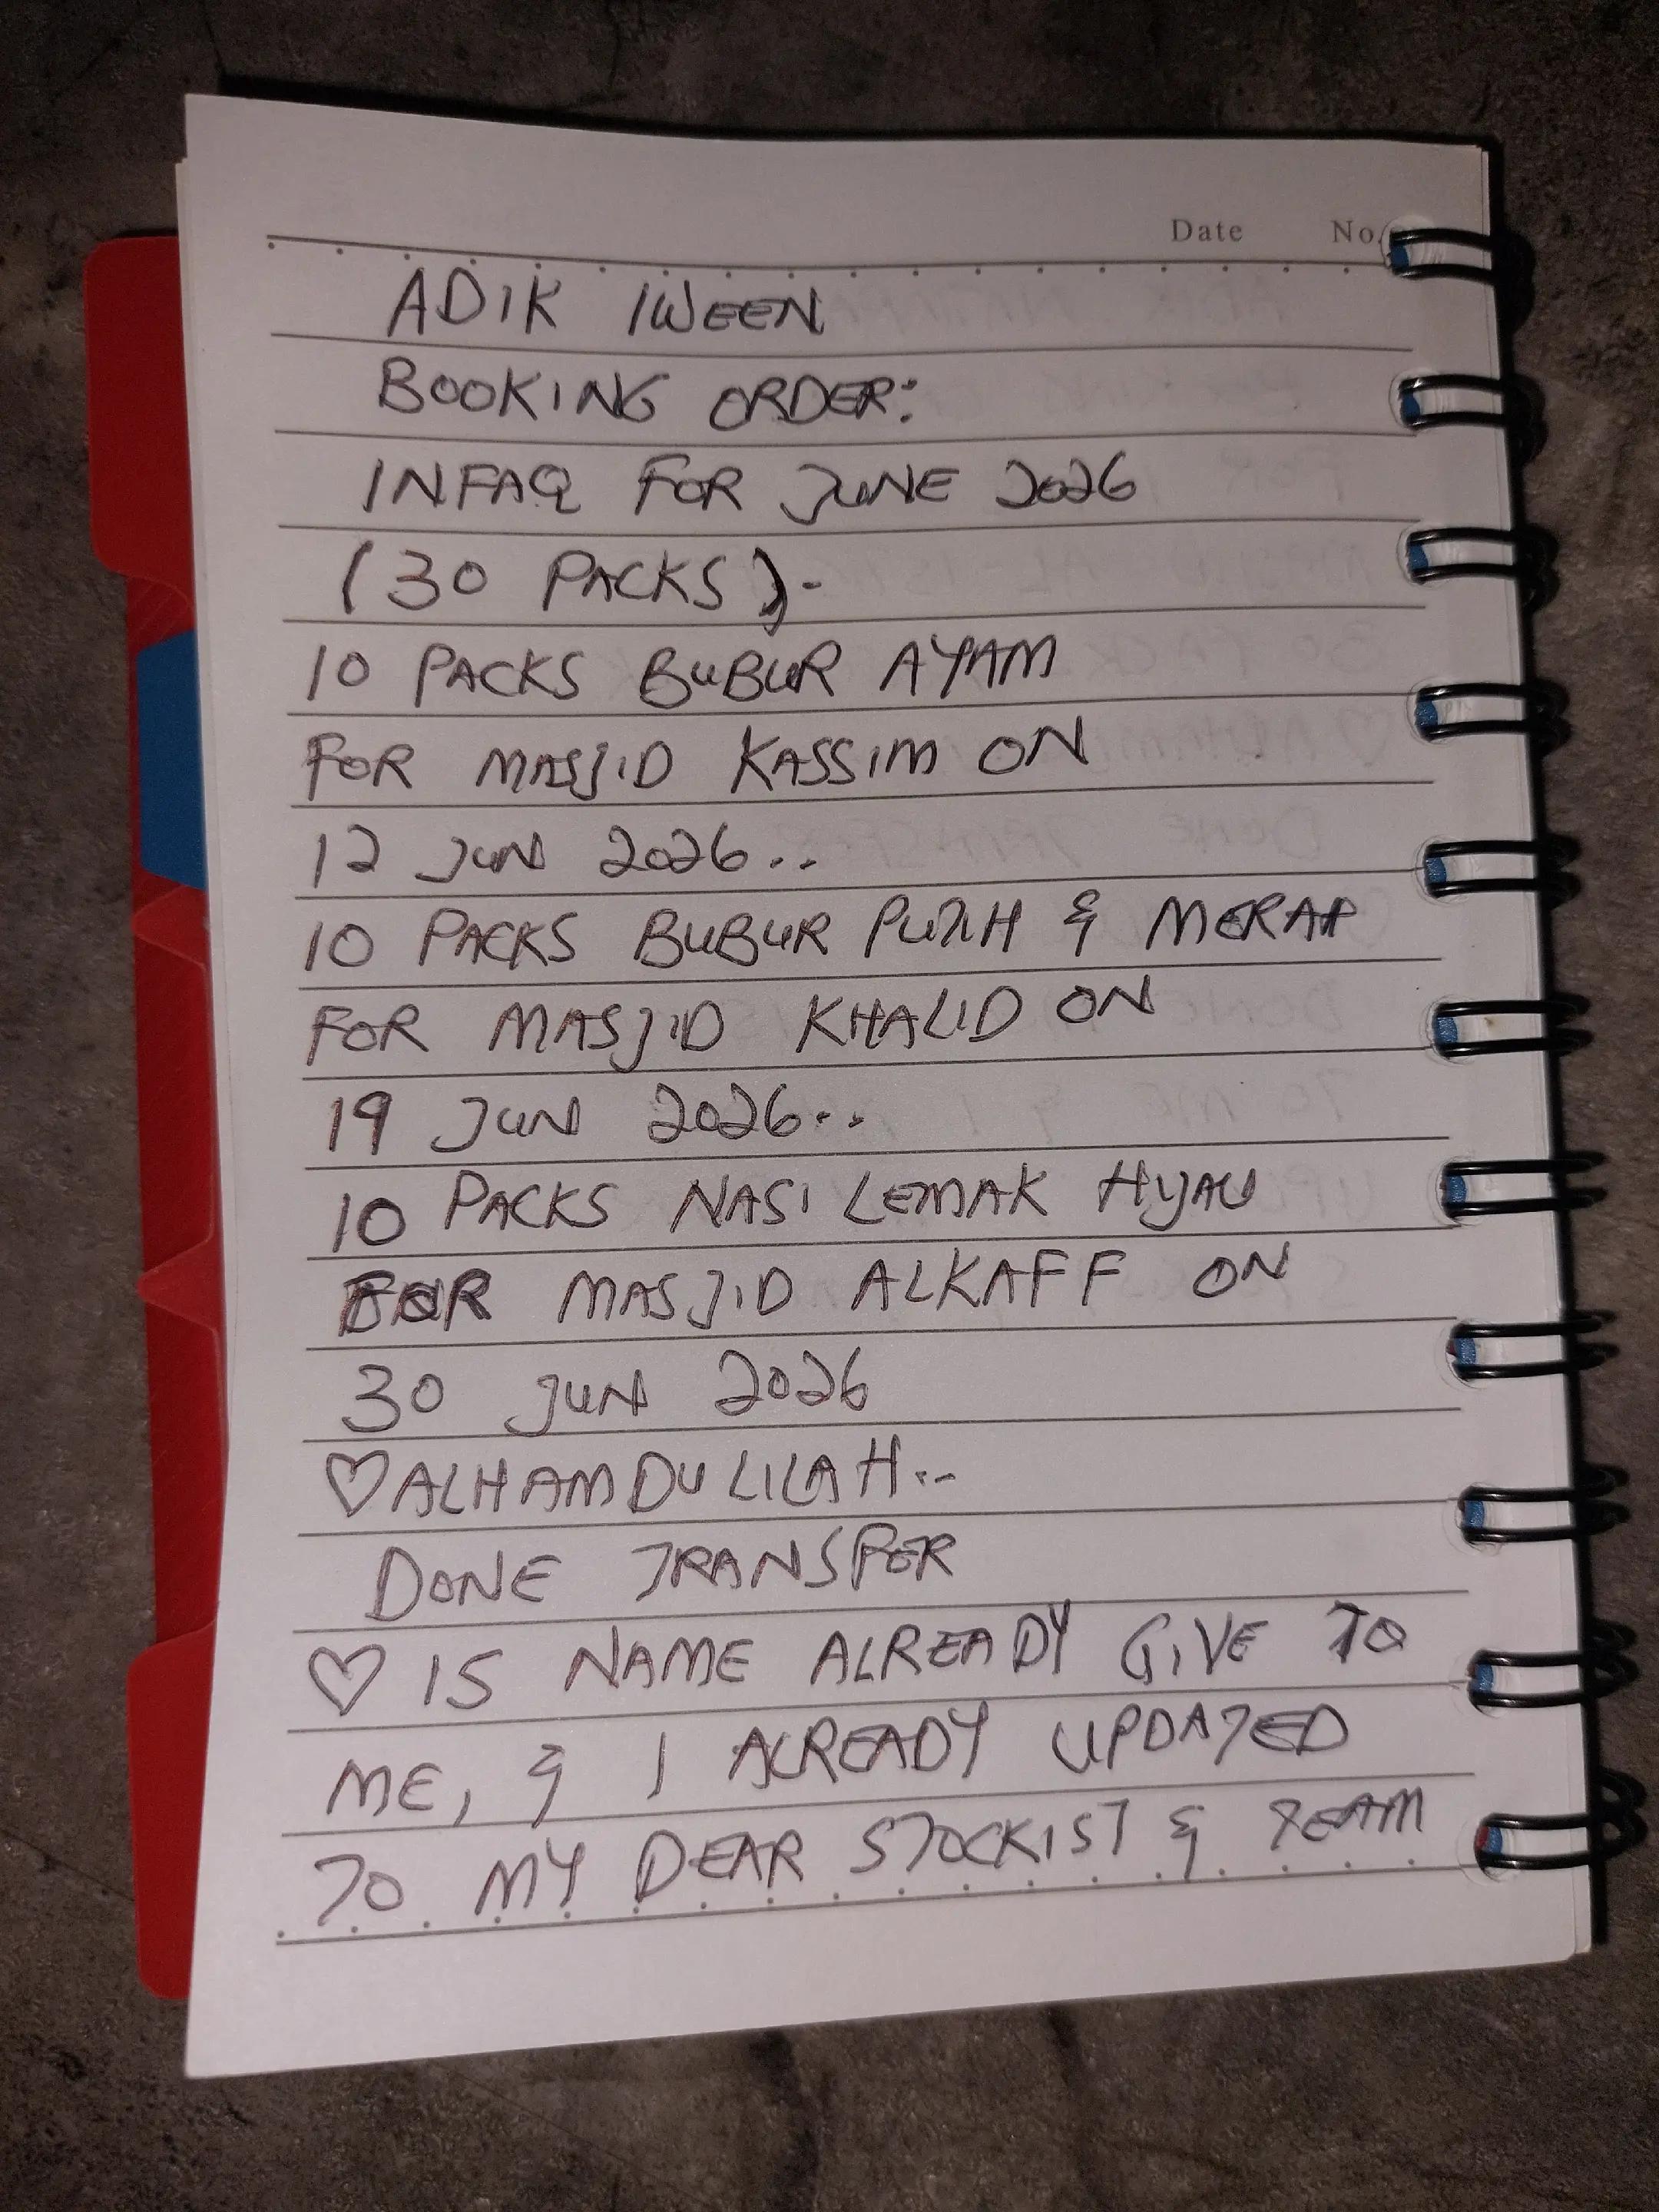 Date No.
ADIK IWEEN
BOOKING ORDER:
INFAQ FOR JUNE 2026
(30 PACKS).-
10 PACKS BUBUR AYAM
FOR MASJID KASSIM ON
12 JUN 2026..
10 PACKS BUBUR PUTIH & MERAH
FOR MASJID KHALID ON
19 JUN 2026..
10 PACKS NASI LEMAK HIJAU
FOR MASJID ALKAFF ON
30 JUN 2026
♡ALHAMDULILAH..
DONE TRANSFER
♡ 15 NAME ALREADY GIVE TO
ME, & I ALREADY UPDATED
TO MY DEAR STOCKIST & TEAM